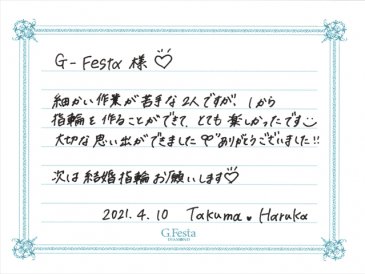 G-Festa 様♡
細かい作業が苦手な2人ですが、1から
指輪を作ることができて、とても楽しかったです
大切な思い出ができました♡ありがとうございました!!
次は結婚指輪お願いします♡
2021.4.10 Takuma ♥ Haruka
G.Festa
DIAMOND